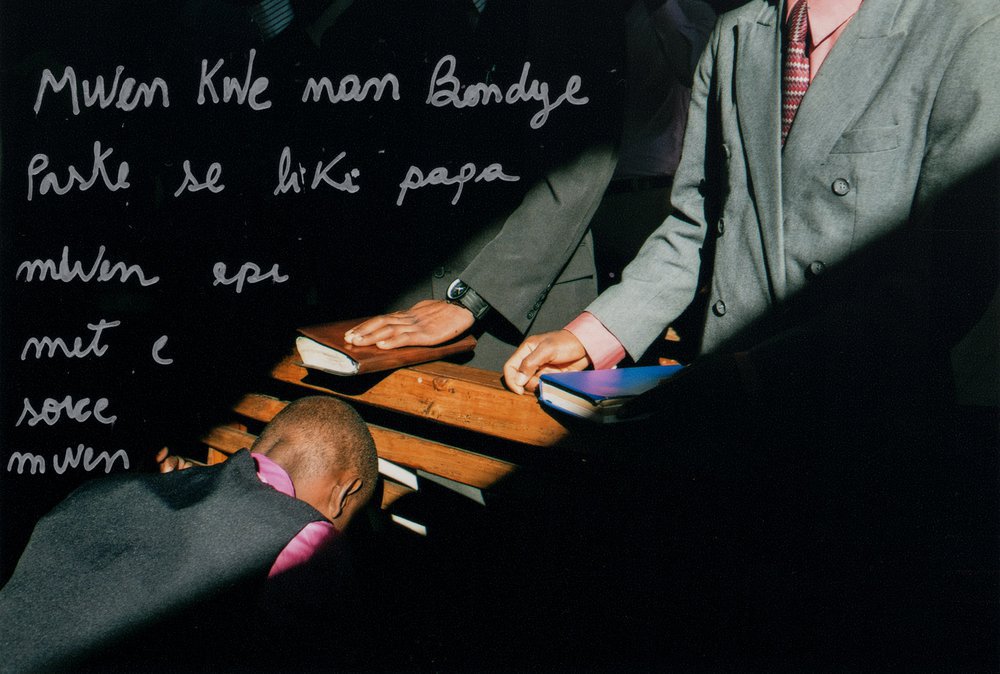 Mwen Kwe nan Bondye
Paske se li ki papa
mwen epi
met e
sove
mwen